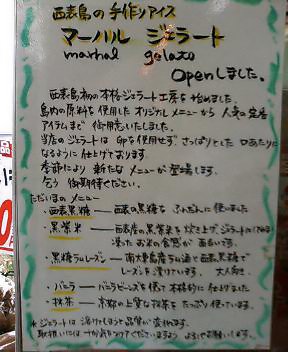 西表島の手作りアイス
マーハル ジェラート
marhal gelato
Openしました。
西表島初の本格ジェラート工房を始めました。
島内の原料を使用したオリジナルメニューから人気の定番
アイテムまで 御用意いたしました。
当店のジェラートは卵を使用せず、さっぱりとした口あたりに
なるように仕上げております。
季節により新たなメニューが登場します。
乞う御期待ください。
ただいまのメニュー
・西表黒糖 ― 西表の黒糖を ふんだんに使いました
・黒紫米 ― 西表産の黒紫米を炊き上げ、ジェラートに
凍った お米の食感が 面白いです。
・黒糖ラムレーズン ― 南大東島産ラム酒で西表黒糖で
レーズンを漬けています。 大人向き。
・バニラ ― バニラビーンズを使って本格的に仕上げました
・抹茶 ― 京都の上質な抹茶をたっぷり使っています。
*ジェラートは溶けてしまうと品質が変わります。
取扱いには十分気をつけてくださいますよう よろしくお願いします。